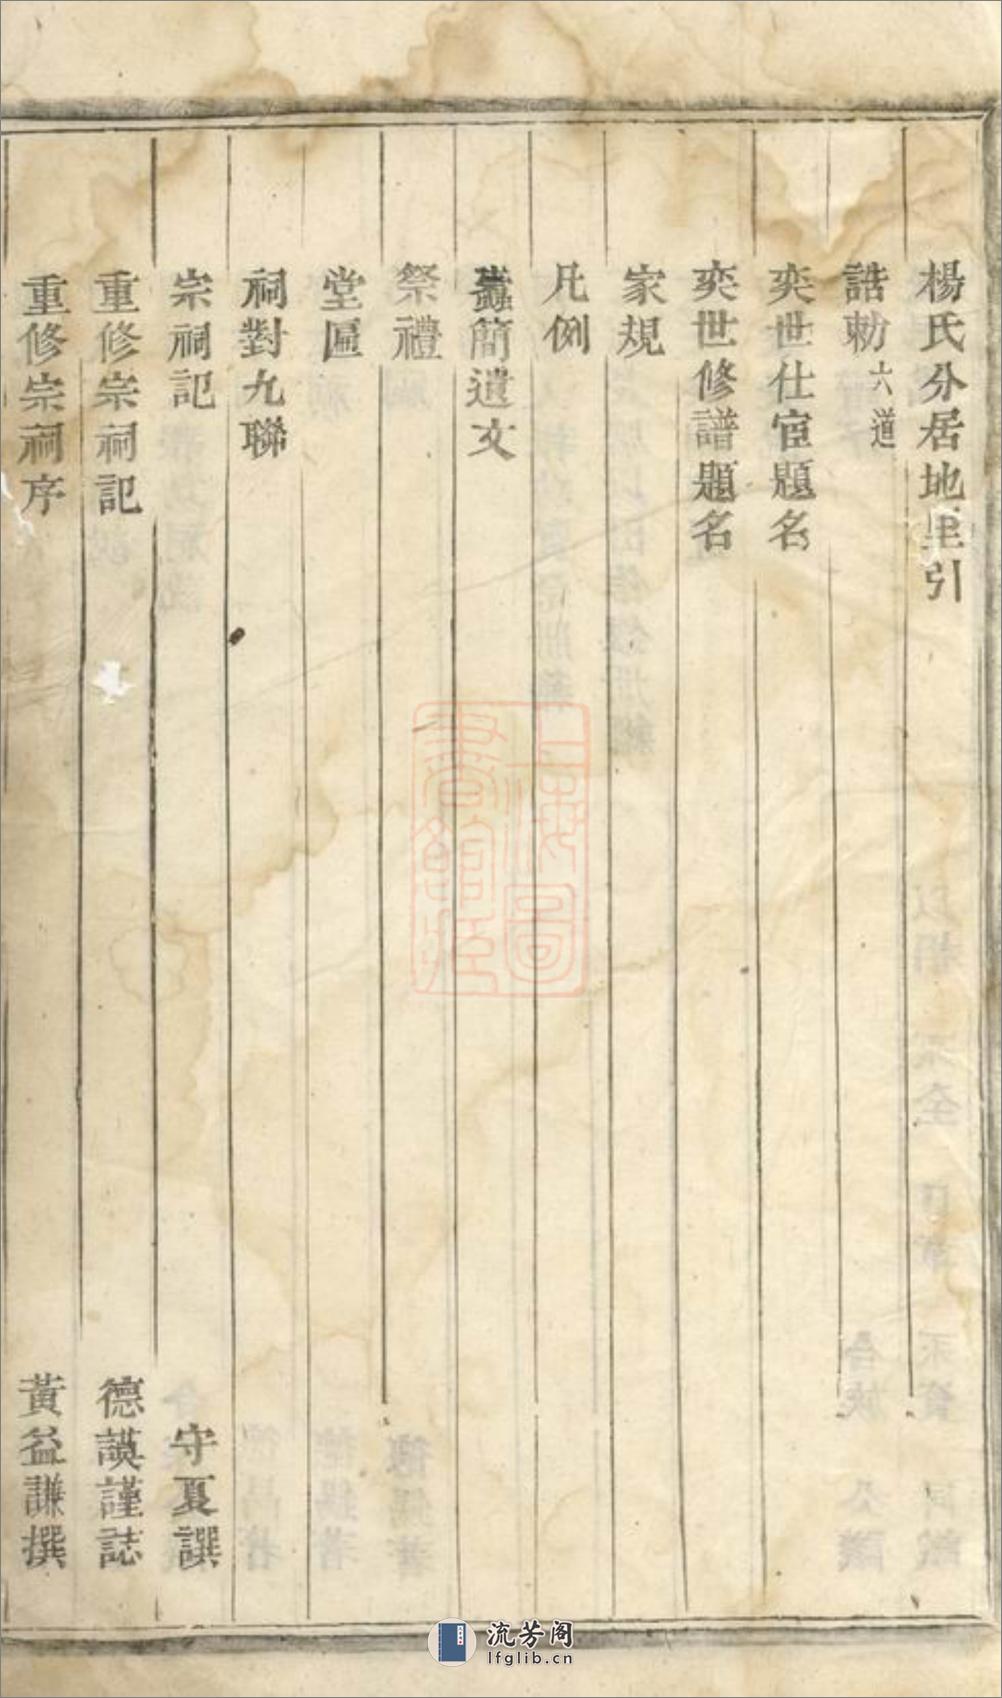 楊氏分居地里引
誥勅六道
奕世仕宦題名
奕世修譜題名
家規
凡例
蠹簡遺文
祭禮
堂匾
祠對九聯
宗祠記 守夏譔
重修宗祠記 德謨謹誌
重修宗祠序 黃益謙撰
上海圖書館藏
流芳阁
lfglib.cn